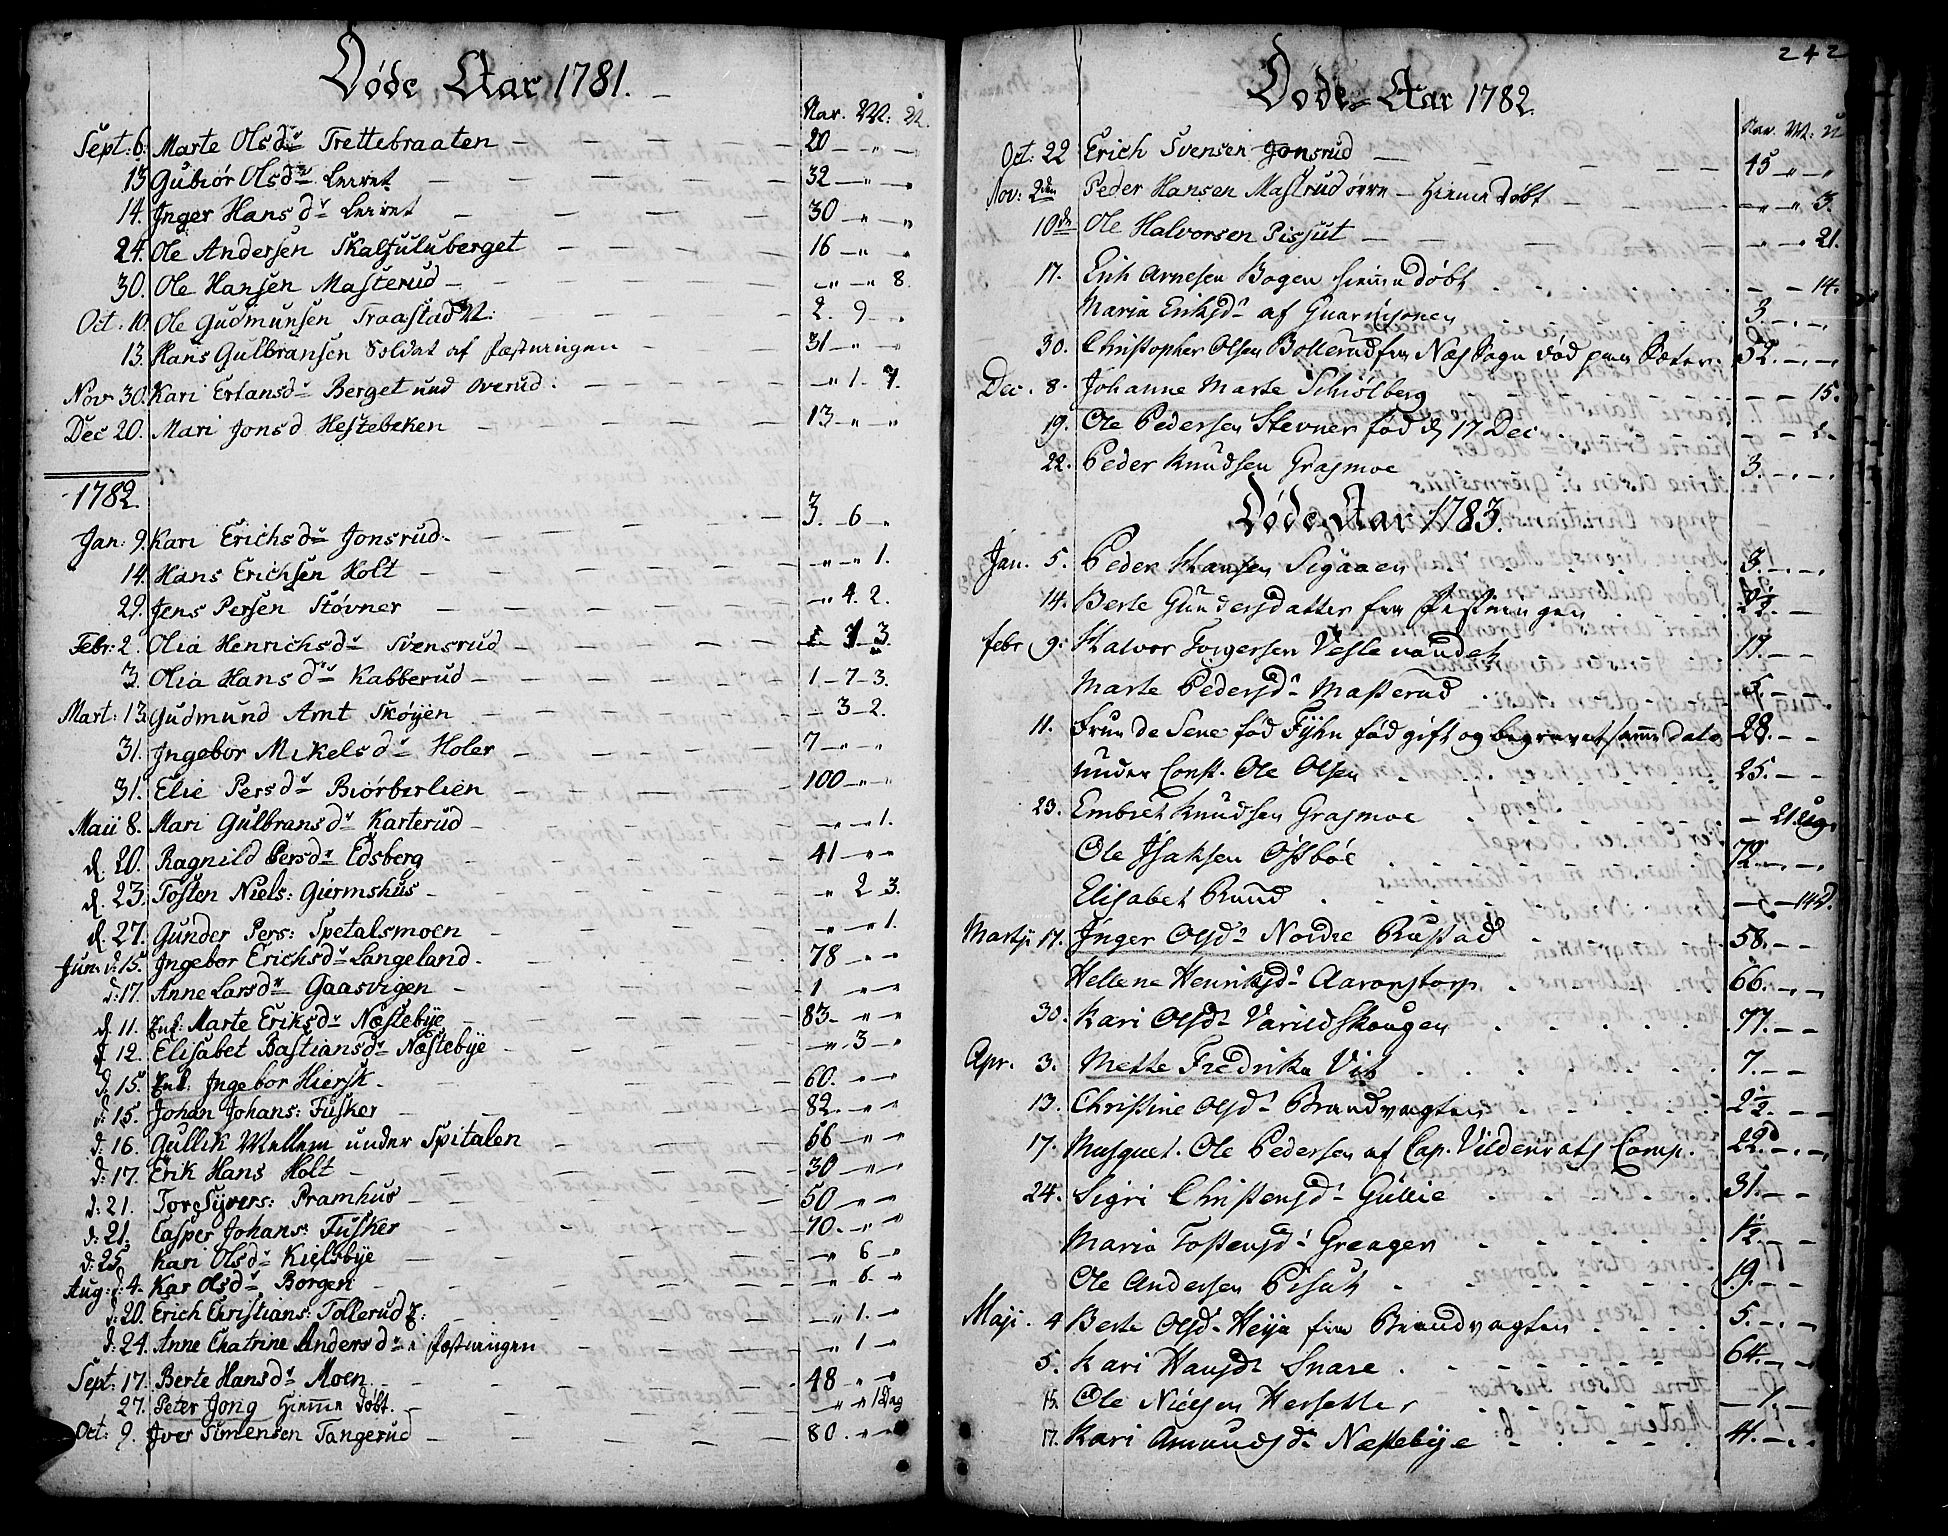 Døde Aar 1781.
Aar. M: U.
Sept: 6. Marte Olsdr Trettebraaten 20
13 Gubiør Olsdr Leiret 32
14. Inger Hansdr Leiret 30
24. Ole Andersen Skalsuluberget 16
30. Ole Hansen Masterud 8.
Oct: 10. Ole Gudmunsen Traastad 2. 9
13. Hans Gulbransen Soldat af Fæstningen 31
Nov 30. Kari Erlansdr Berget und Overud: 1. 7.
Dec 20. Mari Jonsd Hestebeken 13
1782
Jan: 9. Kari Erichsdr Jonsrud 3. 6
14. Hans Erichsen Holt 1.
29. Jens Persen Støvner 4. 2.
Febr: 2. Olia Henrichsdr Svensrud 3.
3. Olia Hansdr Kabberud 1-7-3.
Mart: 13. Gudmund Amt Skøyen 3-2.
31. Ingebor Mikelsdr Holer 7
31. Elie Persdr Biørberlien 100
Maii 8. Mari Gulbransdr Karterud 1.
d. 20. Ragnild Persdr Edsberg 41
d. 23. Tosten Niels: Giermshus 2 3.
d. 27. Gunder Pers: Spetalsmoen 1.
Jun: d: 15. Ingebor Erichsdr Langeland 78
d: 17. Anne Larsdr Gaasvigen 1
d. 11. Enk: Marte Eriksdr Næstebÿe 83
d 12. Elisabet Bastiansdr Næstebÿe 3
d. 15. Enk: Ingebor Hiersk 60.
d: 15. Johan Johans: Fusker 82.
d: 16. Gullik Mellem under Spitalen 66
d: 17. Erik Hans Holt 30
d: 21. Tore Syvers: Pramhus 50
d: 21. Casper Johans: Fusker 70.
d: 25 Kari Olsdr Kielsbÿe 6
Aug: d: 4. Kar Olsdr Borgen 6.
d: 20. Erich Christians: Tollerud 1.
d: 24. Anne Chatrine Andersdr i Fæstningen 1
Sept: 17. Berte Hansdr Moen 48
27. Peter Jong Hiemme døbt. 1 Dag
Oct: 9. Iver Simensen Tangerud 80.
242
Døde Aar 1782.
Aar. M: U
Oct: 22 Erich Svensen Jonsrud 45
Nov: 2den Peder Hansen Mastrud øvre - Hiemme døbt 3.
10de Ole Halvorsen Pissut 21.
17. Erik Arnesen Bogen hiemmedøbt 14.
Maria Eriksdr af Guarnisonen 3
30. Christopher Olsen Bollerud fra Næs Sogn død paa 52.
Dec. 8. Johanne Marte Schiølberg 15.
19. Ole Pedersen Stevner fød d 17 Dec.
22. Peder Knudsen Grasmoe 3.
Døde Aar 1783.
Jan. 5. Peder Hansen Sigaaen 3.
14. Berte Gundersdatter fra Festningen
febr 9. Halvor Torgersen Veslevandet 17.
Marte Pedersdr Masterud 5.
11. Frue de Sene fød Fÿhn fød gift og begravet samme dato 28.
under Const. Ole Olsen 25.
23. Embret Knudsen Grasmoe 21 ug.
Ole Isaksen Ossbøl 72
Elisabet Rund 14 d.
Martji 17. Inger Olsdr Nordre Rustad 58.
Hellene Henriksdr Aaronstorp 66.
30. Kari Olsdr Varildskougen 77.
Apr. 3. Mette Fredrika Vib 7.
13. Christine Olsdr Brandvagten 2½
17. Musquet. Ole Pedersen af Cap. Vildenrats Comp. 22
24. Sigri Christensdr Gullie 31.
Maria Tostensdr Greager 1½
Ole Andersen Pisut 19.
Maji. 4 Berte Olsdr Heÿa fra Brandvagten 5.
5. Kari Hansdr Snare 64.
15. Ole Nielsen Hersetter 1.
17. Kari Amundsdr Næstebÿe 44.